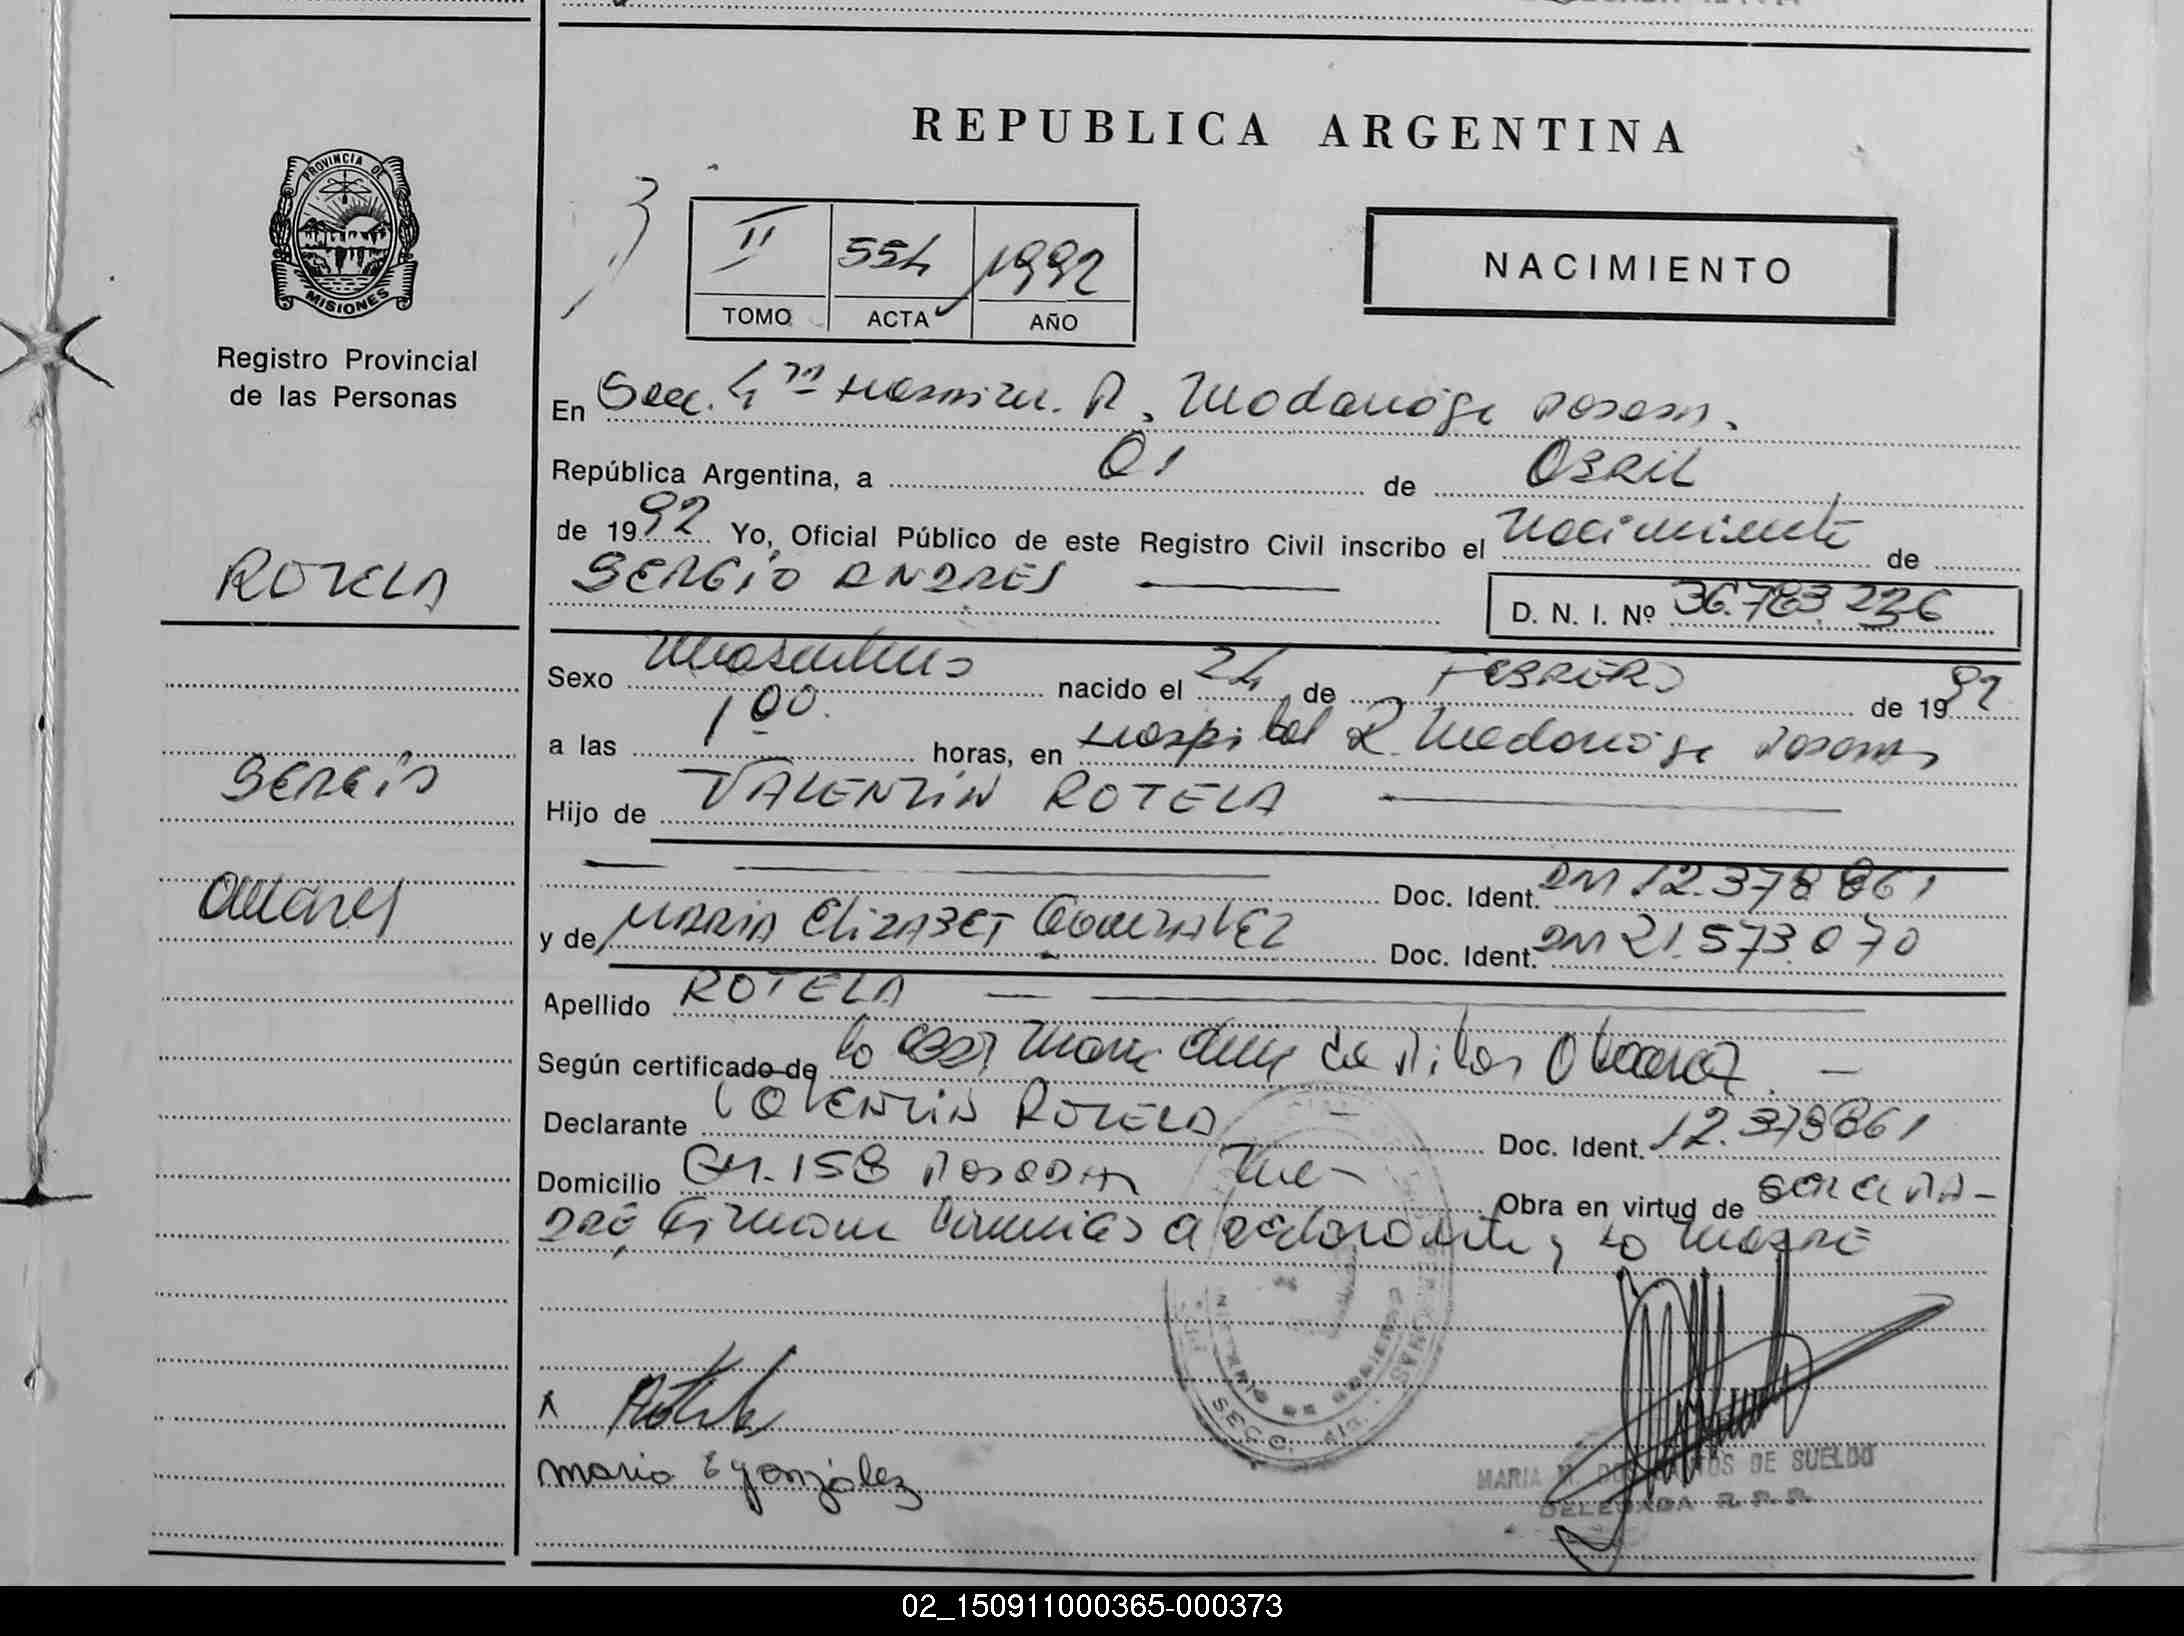 REPUBLICA ARGENTINA
PROVINCIA DE
MISIONES
Registro Provincial
de las Personas
II 554 1992
TOMO ACTA AÑO
NACIMIENTO
En Secc. 4ta Hospital. R. Madariaga Posadas.
República Argentina, a 01 de Abril
de 1992 Yo, Oficial Público de este Registro Civil inscribo el Nacimiento de
ROTELA
SERGIO ANDRES
D. N. I. Nº 36.783.226
Sexo Masculino nacido el 24 de FEBRERO de 1992
a las 1 00. horas, en Hospital R. Madariaga Posadas
SERGIO
Hijo de VALENTIN ROTELA
Doc. Ident. DNI 12.378861
ANDRES
y de MARIA ELIZABET GONZALEZ Doc. Ident. DNI 21.573.070
Apellido ROTELA
Según certificado de la Obst
Declarante VALENTIN ROTELA Doc. Ident. 12.378861
Domicilio Ch. 158 POSADAS Mnes Obra en virtud de SER EL PA-
DRE, Firman conmigo el declarante y la MADRE
SECC. 4ta.
Maria E gonzález
MARIA DOS SANTOS DE SUELDO
DELEGADA R.P.P.
02_150911000365-000373